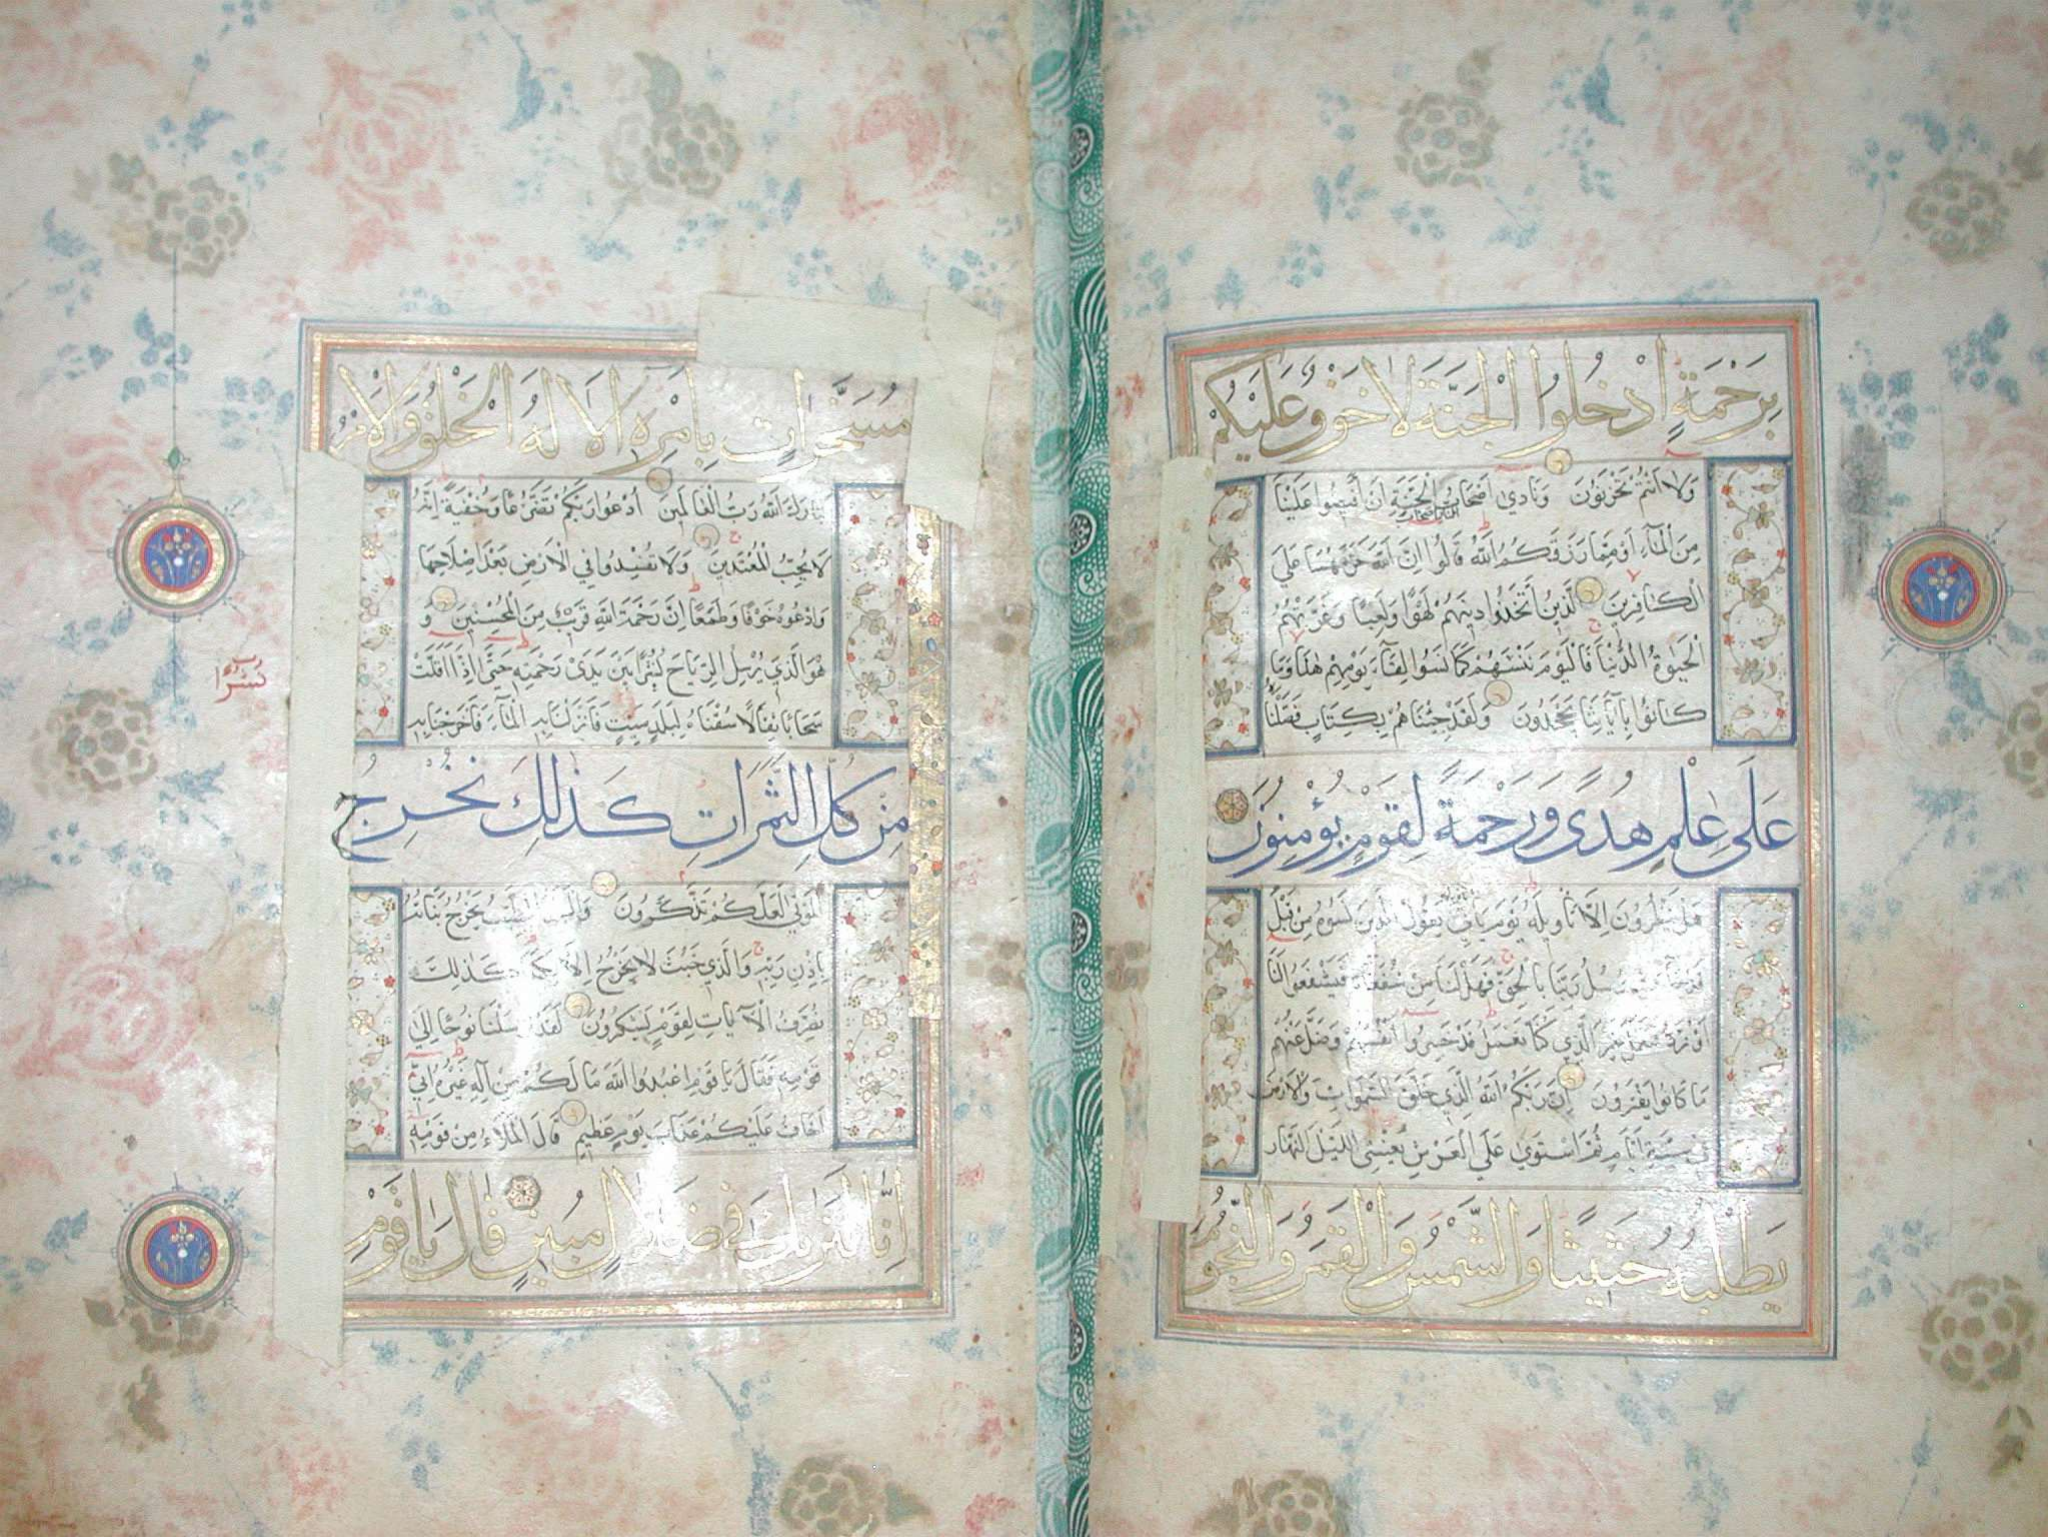 بِرَحْمَةٍ اُدْخُلُوا الْجَنَّةَ لَا خَوْفٌ عَلَيْكُمْ
وَلَا اَنْتُمْ تَحْزَنُونَ وَنَادٰى اَصْحَابُ الْجَنَّةِ اَنْ اَفِيضُوا عَلَيْنَا
مِنَ الْمَآءِ اَوْ مِمَّا رَزَقَكُمُ اللّٰهُ قَالُوا اِنَّ اللّٰهَ حَرَّمَهُمَا عَلَى
الْكَافِرِينَ الَّذِينَ اتَّخَذُوا دِينَهُمْ لَهْوًا وَلَعِبًا وَغَرَّتْهُمُ
الْحَيٰوةُ الدُّنْيَا فَالْيَوْمَ نَنْسٰهُمْ كَمَا نَسُوا لِقَآءَ يَوْمِهِمْ هٰذَا وَمَا
كَانُوا بِاٰيَاتِنَا يَجْحَدُونَ وَلَقَدْ جِئْنَاهُمْ بِكِتَابٍ فَصَّلْنَاهُ
عَلٰى عِلْمٍ هُدًى وَرَحْمَةً لِقَوْمٍ يُؤْمِنُونَ
هَلْ يَنْظُرُونَ اِلَّا تَاْوِيلَهُ يَوْمَ يَاْتِي تَاْوِيلُهُ يَقُولُ الَّذِينَ نَسُوهُ مِنْ قَبْلُ
قَدْ جَآءَتْ رُسُلُ رَبِّنَا بِالْحَقِّ فَهَلْ لَنَا مِنْ شُفَعَآءَ فَيَشْفَعُوا لَنَا
اَوْ نُرَدُّ فَنَعْمَلَ غَيْرَ الَّذِي كُنَّا نَعْمَلُ قَدْ خَسِرُوا اَنْفُسَهُمْ وَضَلَّ عَنْهُمْ
مَا كَانُوا يَفْتَرُونَ اِنَّ رَبَّكُمُ اللّٰهُ الَّذِي خَلَقَ السَّمٰوَاتِ وَالْاَرْضَ
فِي سِتَّةِ اَيَّامٍ ثُمَّ اسْتَوٰى عَلَى الْعَرْشِ يُغْشِي اللَّيْلَ النَّهَارَ
يَطْلُبُهُ حَثِيثًا وَالشَّمْسَ وَالْقَمَرَ وَالنُّجُومَ
مُسَخَّرَاتٍ بِاَمْرِهِ اَلَا لَهُ الْخَلْقُ وَالْاَمْرُ
تَبَارَكَ اللّٰهُ رَبُّ الْعَالَمِينَ اُدْعُوا رَبَّكُمْ تَضَرُّعًا وَخُفْيَةً اِنَّهُ
لَا يُحِبُّ الْمُعْتَدِينَ وَلَا تُفْسِدُوا فِي الْاَرْضِ بَعْدَ اِصْلَاحِهَا
وَادْعُوهُ خَوْفًا وَطَمَعًا اِنَّ رَحْمَةَ اللّٰهِ قَرِيبٌ مِنَ الْمُحْسِنِينَ وَ
هُوَ الَّذِي يُرْسِلُ الرِّيَاحَ بُشْرًا بَيْنَ يَدَيْ رَحْمَتِهِ حَتّٰى اِذَا اَقَلَّتْ
سَحَابًا ثِقَالًا سُقْنَاهُ لِبَلَدٍ مَيِّتٍ فَاَنْزَلْنَا بِهِ الْمَآءَ فَاَخْرَجْنَا بِهِ
مِنْ كُلِّ الثَّمَرَاتِ كَذٰلِكَ نُخْرِجُ
الْمَوْتٰى لَعَلَّكُمْ تَذَكَّرُونَ وَالْبَلَدُ الطَّيِّبُ يَخْرُجُ نَبَاتُهُ
بِاِذْنِ رَبِّهِ وَالَّذِي خَبُثَ لَا يَخْرُجُ اِلَّا نَكِدًا كَذٰلِكَ
نُصَرِّفُ الْاٰيَاتِ لِقَوْمٍ يَشْكُرُونَ لَقَدْ اَرْسَلْنَا نُوحًا اِلٰى
قَوْمِهِ فَقَالَ يَا قَوْمِ اعْبُدُوا اللّٰهَ مَا لَكُمْ مِنْ اِلٰهٍ غَيْرُهُ اِنِّي
اَخَافُ عَلَيْكُمْ عَذَابَ يَوْمٍ عَظِيمٍ قَالَ الْمَلَاُ مِنْ قَوْمِهِ
اِنَّا لَنَرٰيكَ فِي ضَلَالٍ مُبِينٍ قَالَ يَا قَوْمِ
نُشُرًا